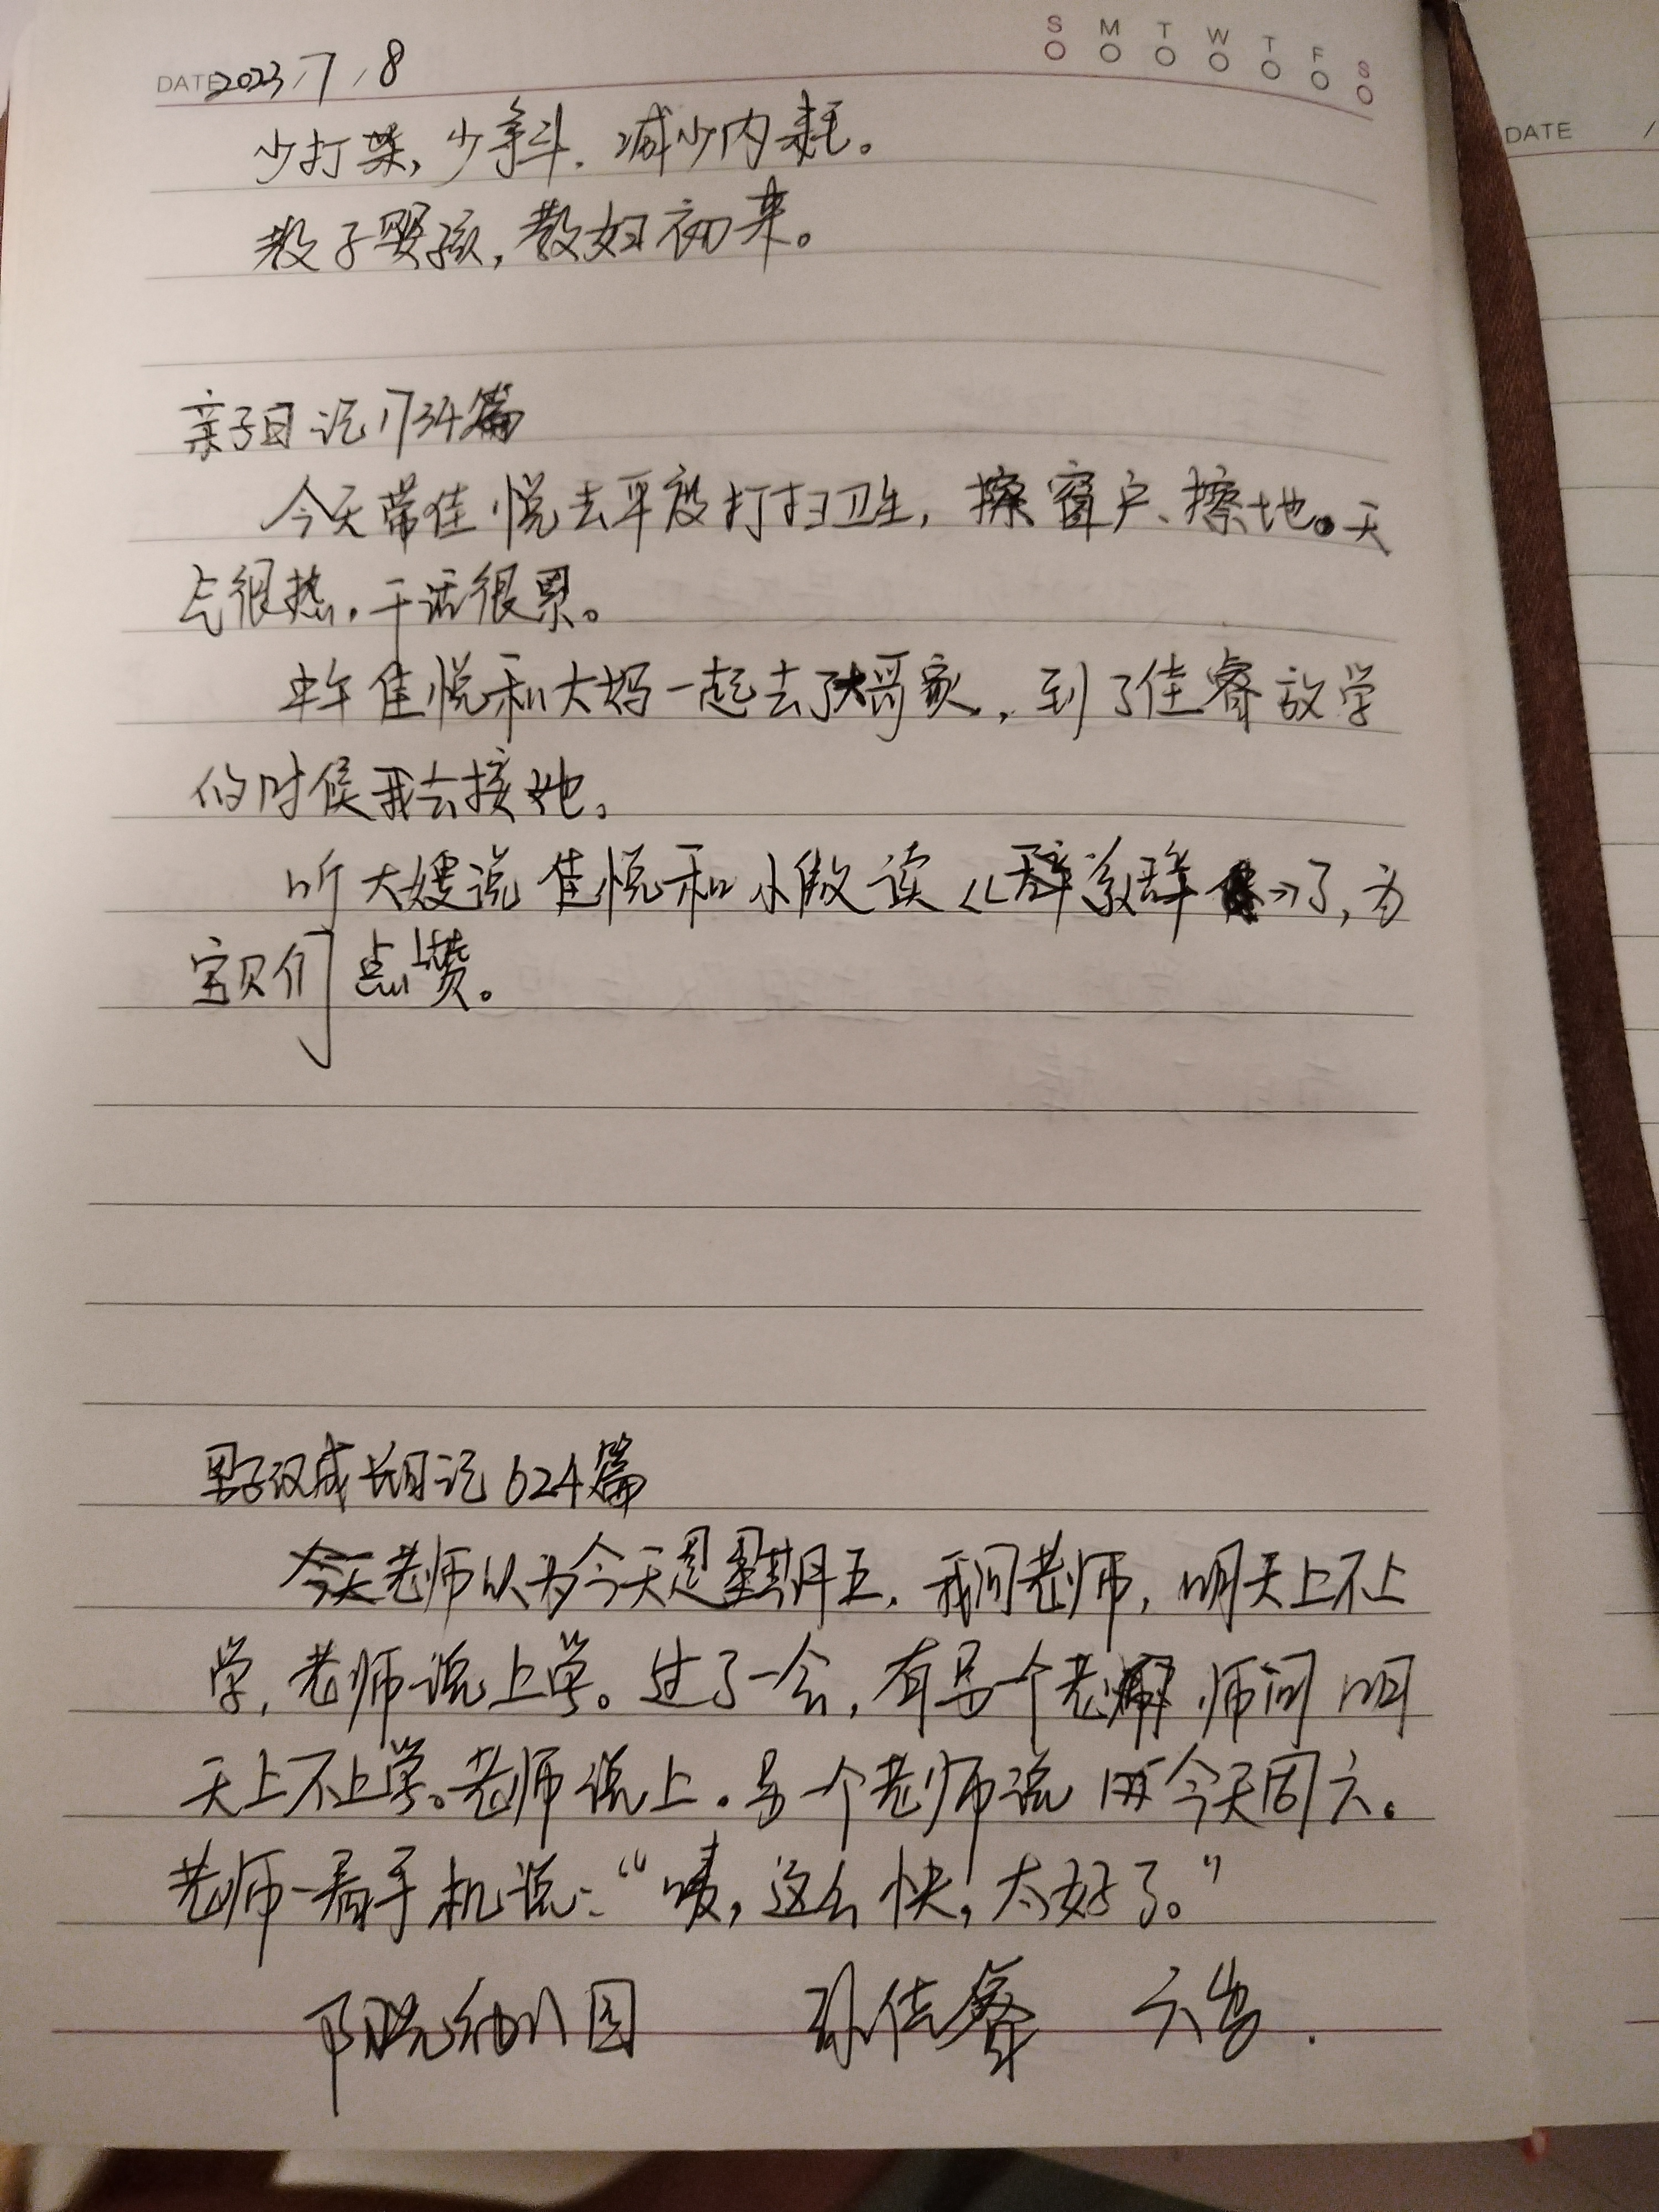 S M T W T F S
DATE 2023/7/8
DATE /
少打柴,少争斗.减少内耗。
教子婴孩,教妇初来。
亲子日记1734篇
今天带佳悦去平度打扫卫生,擦窗户、擦地。天
气很热.干活很累。
中午佳悦和大妈一起去了大哥家.,到了佳睿放学
的时候我去接他。
听大嫂说佳悦和小傲读《群 》了,为
宝贝们点赞。
男子汉成长日记624篇
今天老师以为今天是星期五.我问老师,明天上不上
学,老师说上学。过了一会,有另一个老师问明
天上不上学。老师说上.另一个老师说今天周六。
老师一看手机说:“唛,这么快,太好了。”
阳光幼儿园 孙佳睿 六岁.